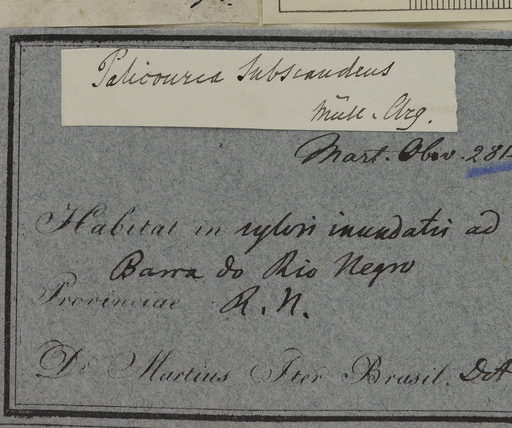 Palicourea Subscandens
Müll. Arg.
Mart. Obs. 281
Habitat in sylvis inundatis ad
Barra do Rio Negro
Provinciae R. N.
Dr Martius Iter Brasil.